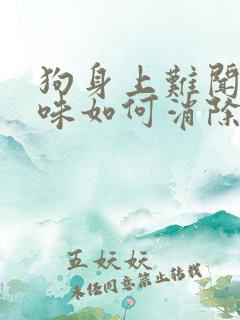 狗身上难闻
味如何消除
五妖妖
未经同意禁止转载